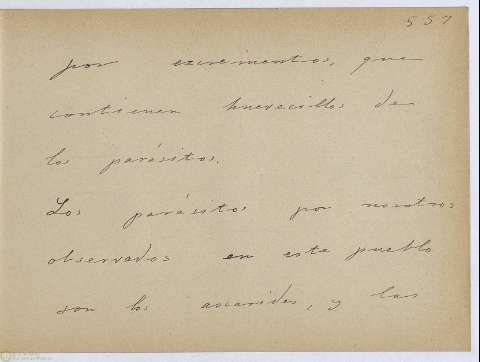 557
por excrementos, que
contienen huevecillos de
los parásitos.
Los parásitos por nosotros
observados en este pueblo
son los ascarides, y las